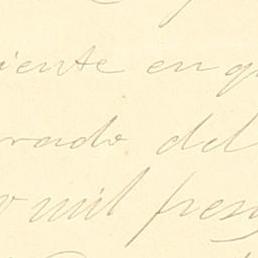 iente en q
rado del
mil pes